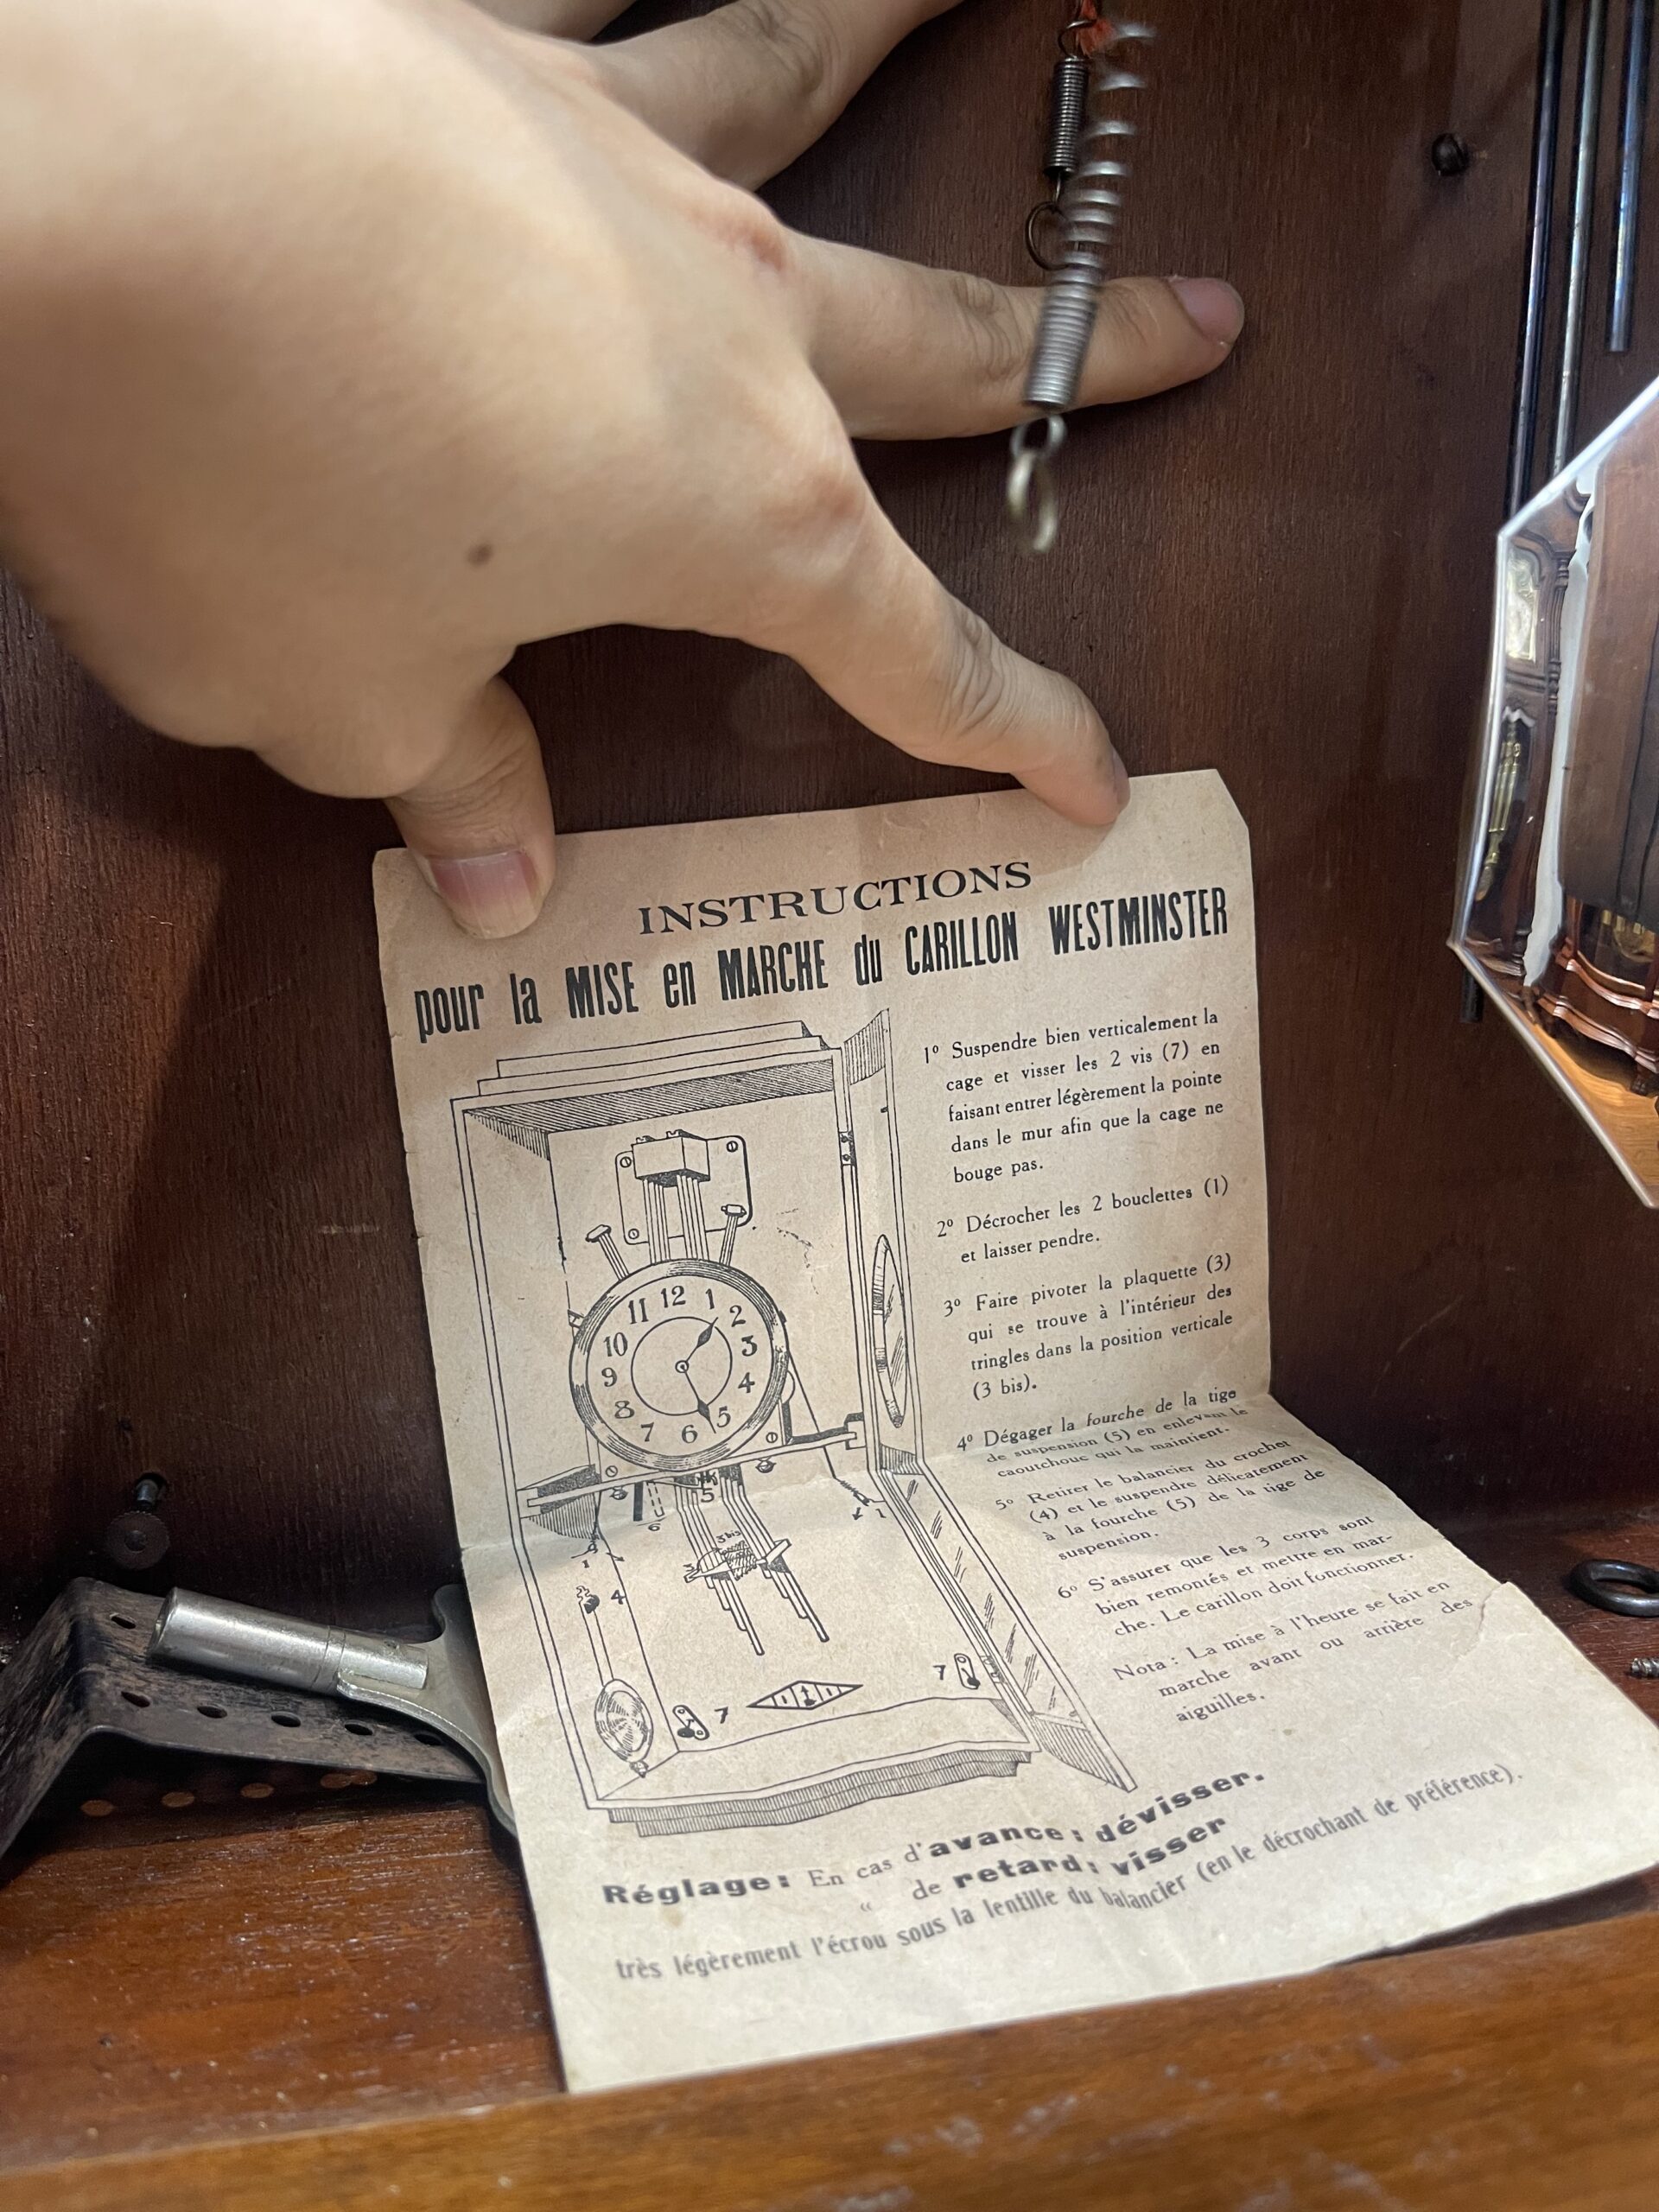 INSTRUCTIONS
pour la MISE en MARCHE du CARILLON WESTMINSTER
1º Suspendre bien verticalement la
cage et visser les 2 vis (7) en
faisant entrer légèrement la pointe
dans le mur afin que la cage ne
bouge pas.
2º Décrocher les 2 bouclettes (1)
et laisser pendre.
3º Faire pivoter la plaquette (3)
qui se trouve à l'intérieur des
tringles dans la position verticale
(3 bis).
4º Dégager la fourche de la tige
de suspension (5) en enlevant le
caoutchouc qui la maintient.
5º Retirer le balancier du crochet
(4) et le suspendre délicatement
à la fourche (5) de la tige de
suspension.
6º S'assurer que les 3 corps sont
bien remontés et mettre en mar-
che. Le carillon doit fonctionner.
Nota : La mise à l'heure se fait en
marche avant ou arrière des
aiguilles.
12
11 1
10 2
9 3
8 4
7 5
6
5
6
1
3 bis
3
1
4
7
7
Réglage : En cas d'avance : dévisser.
" de retard : visser
très légèrement l'écrou sous la lentille du balancier (en le décrochant de préférence).